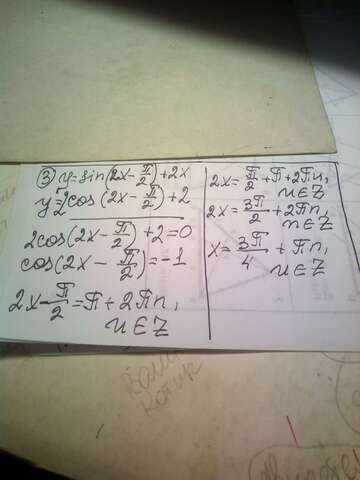 ③ y=sin(2x-π/2)+2x
y=2cos(2x-π/2)+2
2cos(2x-π/2)+2=0
cos(2x-π/2)=-1
2x-π/2=π+2πn,
n∈Z
2x=π/2+π+2πn,
n∈Z
2x=3π/2+2πn,
n∈Z
x=3π/4+πn,
n∈Z